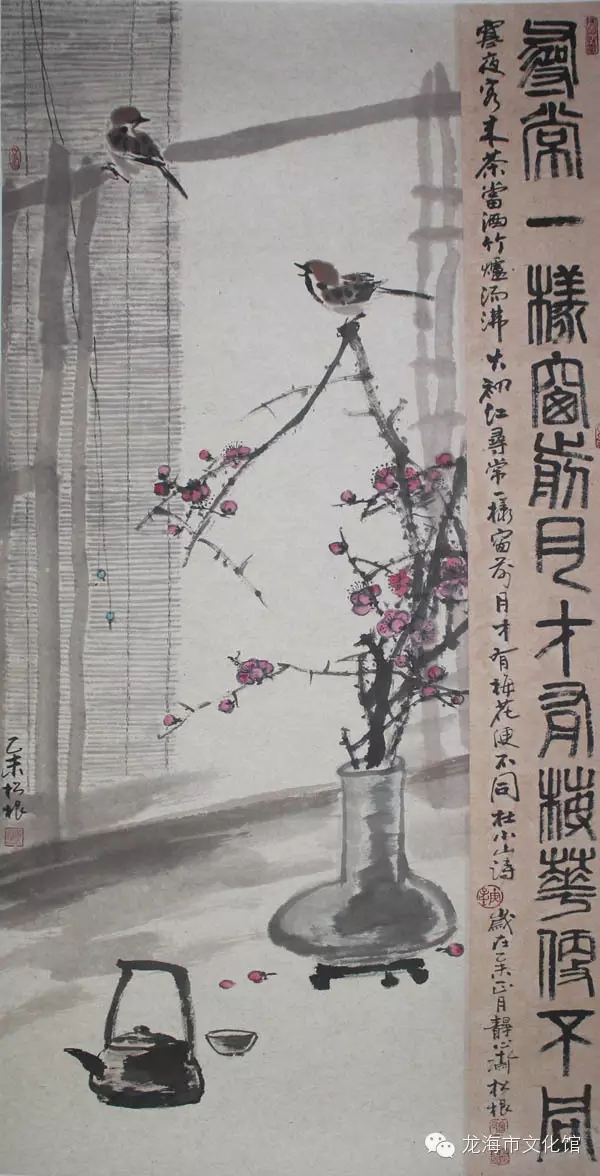 尋常一樣窗前月才有梅華便不同
寒夜客来茶當酒竹爐湯沸火初红尋常一樣窗前月才有梅花便不同杜小山詩
歲在乙未正月靜心斋松根
乙未松根
龙海市文化馆